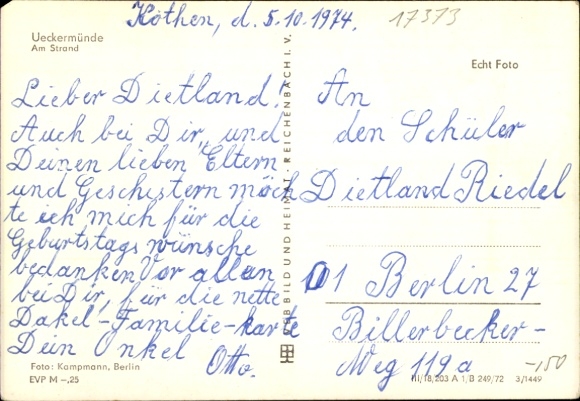 Köthen, d. 5.10.1974.
17373
Ueckermünde
Am Strand
Echt Foto
Lieber Dietland!
Auch bei Dir, und
Deinen lieben Eltern
und Geschistern möch
te ich mich für die
Geburtstags wünsche
bedanken Vor allen
bei Dir, für die nette
Dakel-Familie-karte
Dein Onkel
Otto.
An
den Schüler
Dietland Riedel
1 Berlin 27
Billerbecker-
Weg 119a
-,50
BILD UND HEIMAT REICHENBACH I. V.
Foto: Kampmann, Berlin
EVP M –,25
III/18/203 A 1/B 249/72 3/1449